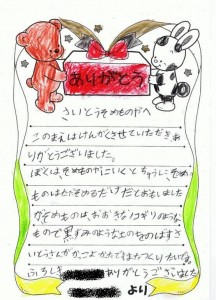 ありがとう
さいとうそめものやへ
このまえはけんがくさせていただきあ
りがとうございました。
ぼくはそめものやにいくとちゅう、そめ
ものはただそめるだけだとおもいました
がそめものは、おおきなノコギリのような
もので黒ずみのような土のものはすさ
いとうさんがかっこよかたです
ありがとうございました
より